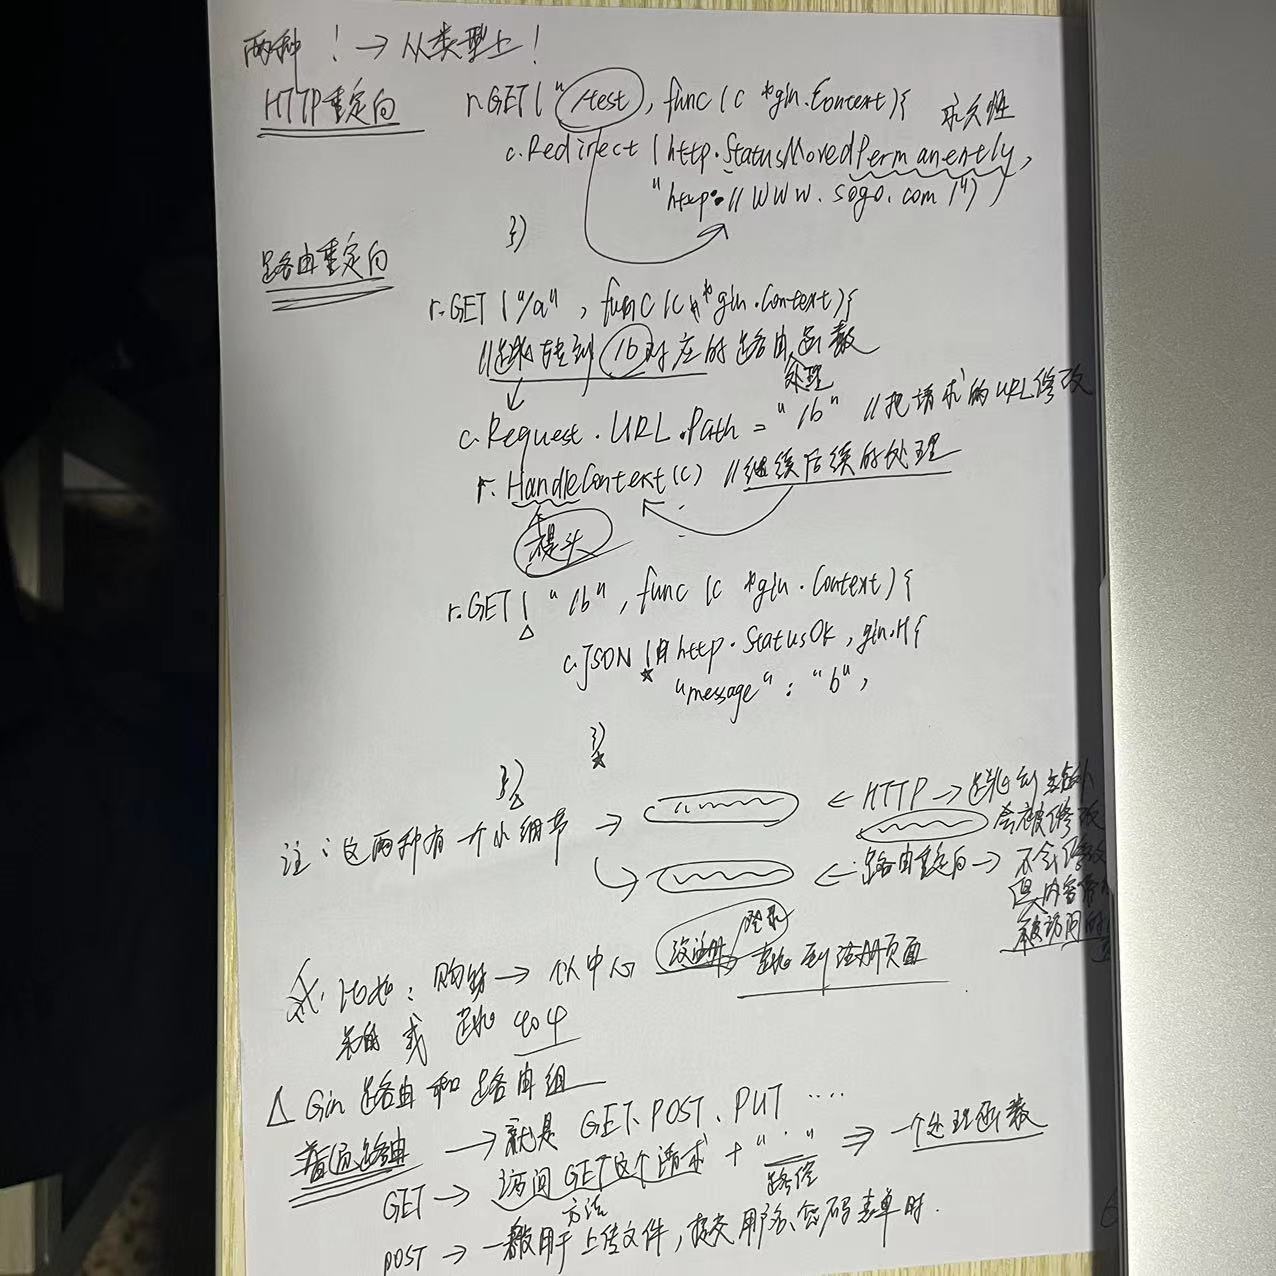 两种！→从类型上！
HTTP重定向 r.GET("/test", func(c *gin.Context){ 永久性
c.Redirect(http.StatusMovedPermanently,
"http://www.sogo.com/")
})
路由重定向
r.GET("/a", func(c *gin.Context){
//跳转到/b对应的路由函数
处理
c.Request.URL.Path = "/b" //把请求的URL修改
r.HandleContext(c) //继续后续的处理
提头
r.GET("/b", func(c *gin.Context){
c.JSON(http.StatusOK, gin.H{
"message": "b",
})
})
注：这两种有一个小细节 → ← HTTP → 跳到
会被修改
← 路由重定向 → 不会修改
但内容
被访问的
购物 → 个人中心 没注册/登录 跳到注册页面
或 跳 404
△ Gin路由和路由组
普通路由 → 就是 GET、POST、PUT ····
GET → 访问GET这个请求 + "." ⇒ 一个处理函数
方法 路径
POST → 一般用于上传文件，提交用户名、密码表单时.